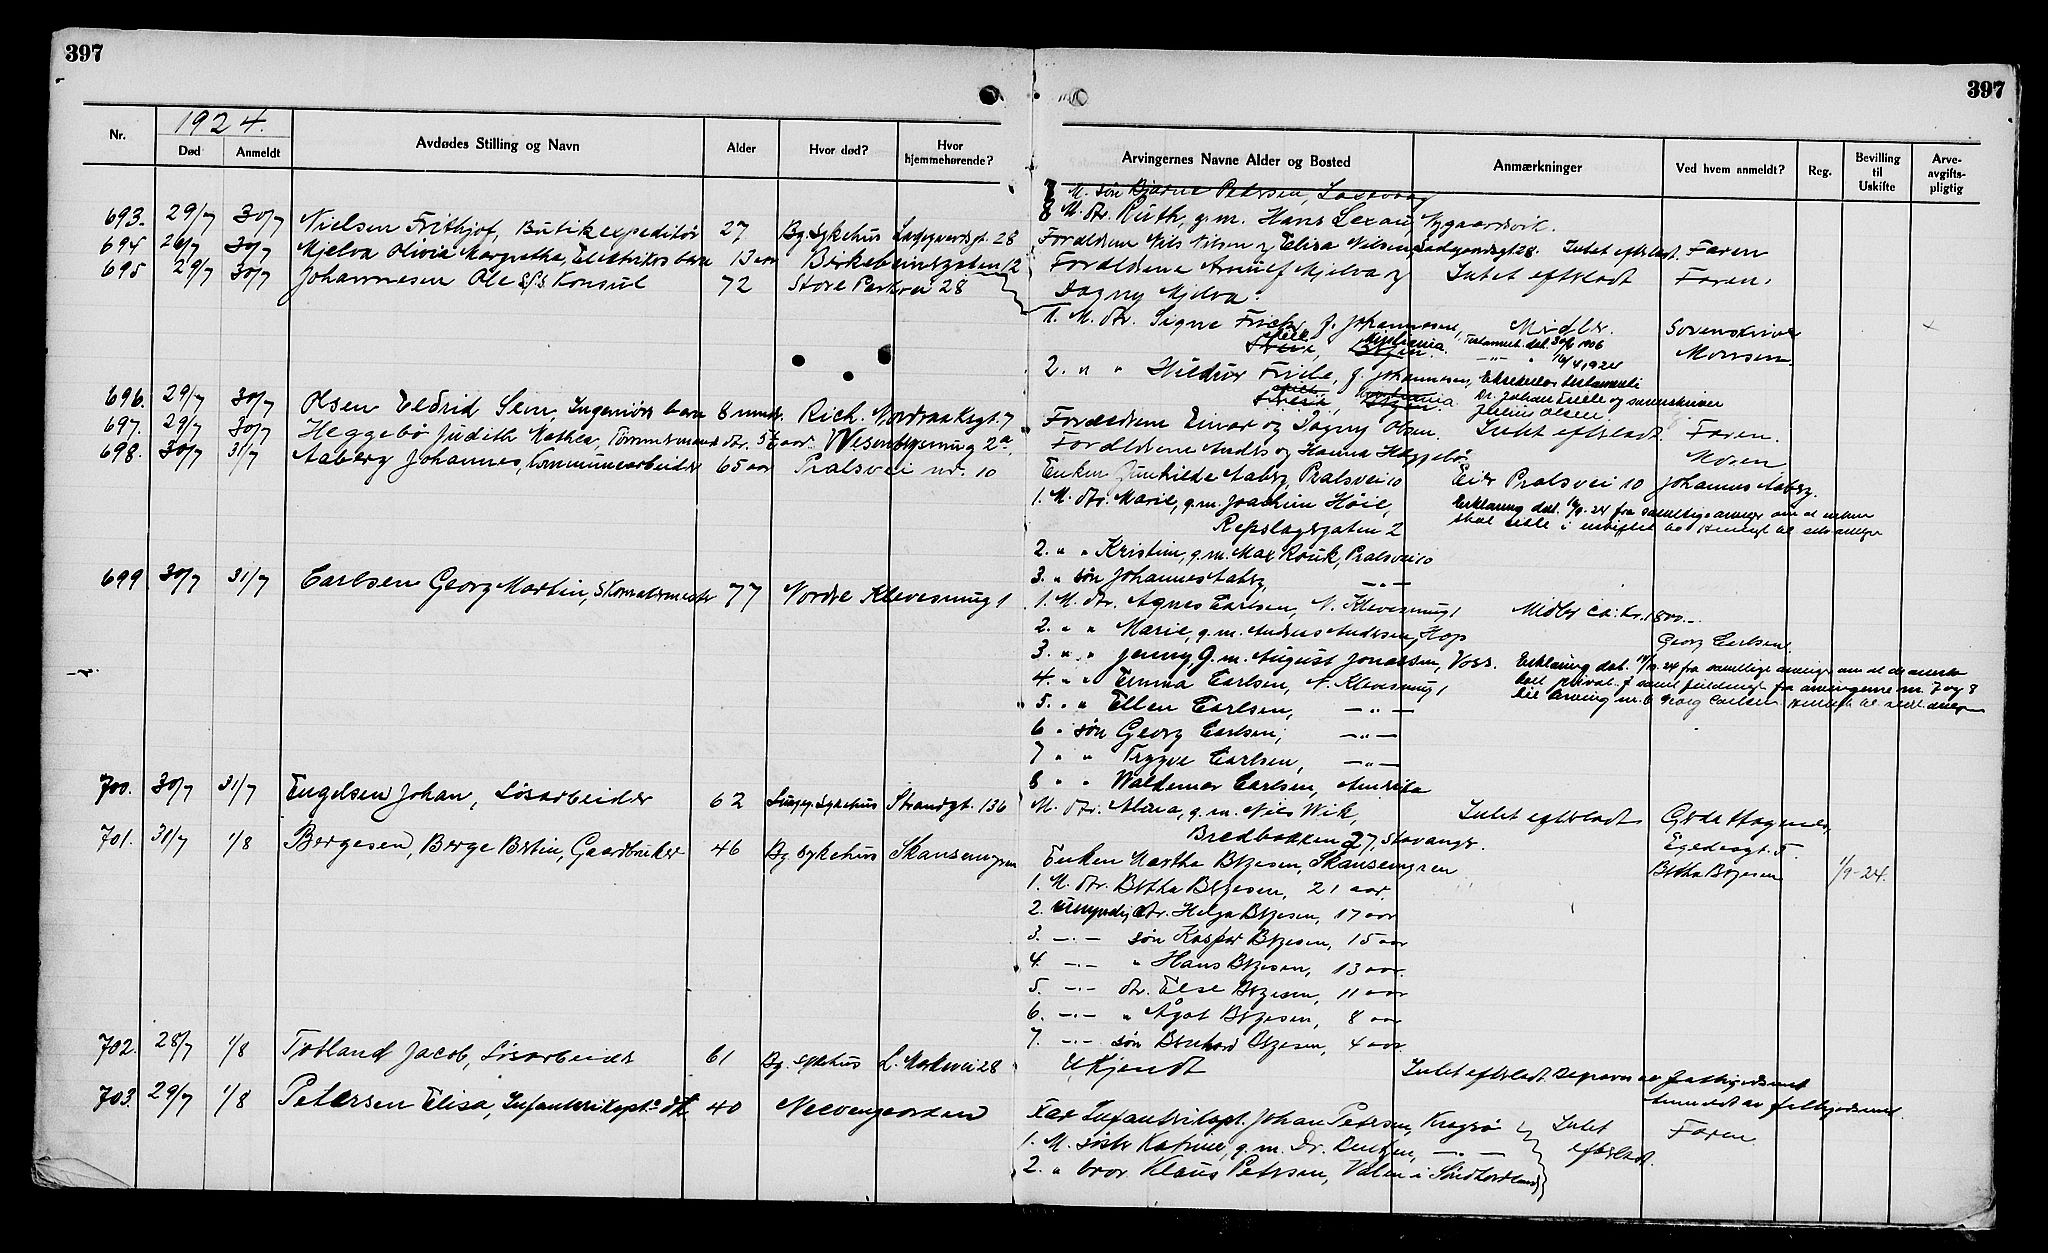 397
397
1924.
Nr. Død Anmeldt Avdødes Stilling og Navn Alder Hvor død? Hvor hjemmehørende?
Arvingernes Navne Alder og Bosted Anmærkninger Ved hvem anmeldt? Reg. Bevilling til Uskifte Arve-avgifts-pligtig
7 M. søn Bjarne Petersen, Laksevaag
8 M. dtr. Ruth, g.m. Hans Lexau, Nygaardsvik.
693. 29/7 30/7 Nielsen Frithjof, Butikexpeditør 27 Bg. Sykehus Ladegaardsgt. 28
Forældrene Nils Nilsen og Elisa Nilsen, Ladegaardsgt 28. Intet efterladt Faren
694 26/7 30/7 Mjelva Olivia Margretha, Elektrikers barn 13 aar Birkebeinergaten 12
Forældrene Arnulf Mjelva og Intet efterladt Faren.
Dagny Mjelva.
695 29/7 30/7 Johannesen Ole S/S Konsul 72 Store Parkvei 28
1. M. dtr. Signe Friele, f. Johannesen, Midler. Sorenskriver
Kristiania. Bergen. Testament dat. 30/6 1906 Monsen
16/4 1924
2. " " Hildur Friele, f. Johannesen, Eksekutor testamenti
Kristiania Bergen. Dr. Johan Friele og sorenskriver
Julius Olsen
696. 29/7 30/7 Olsen Eldrid Sem, Ingeniørs barn 8 mndr. Rich. Nordraaksgt. 7
Forældrene Einar og Dagny Olsen. Intet efterladt. Faren.
697. 29/7 30/7 Heggebø Judith Mathea, Tømmermands dtr. 5 1/2 aar. Wesenbergsmug 2a.
Forældrene Anders og Hanna Heggebø Moren
698. 30/7 31/7 Aaberg Johannes, Kommunearbeider 65 aar Pralsvei nr. 10
Enken Gunhilde Aaberg, Pralsvei 10 Eier Pralsvei 10 Johannes Aaberg.
1. M. dtr. Marie, g.m. Joachim Höie,
Repslagergaten 2
Erklæring dat. 24 fra samtlige arvinger om at enken
skal sitte i uskiftet bo
2. " " Kristine, g.m. Max Rouk, Pralsvei 10
3. " søn Johannes Aaberg, —"—
699 30/7 31/7 Carlsen Georg Martin, Skomakermester 77 Nordre Klevesmug 1
1. M. dtr. Agnes Carlsen, N. Klevesmug 1 Midler ca. kr. 1800.-
2. " " Marie, g.m. Anders Andersen, Hop Georg Carlsen.
3. " " Jenny, g.m. August Jonassen, Voss.
4. " " Emma Carlsen, N. Klevesmug 1
Erklæring dat. 24 fra samtlige arvinger om at de ønsker
fra arvingerne nr. 7 og 8
til arving nr. 6 Georg Carlsen
5. " " Ellen Carlsen, —"—
6 " søn Georg Carlsen, —"—
7 " " Trygve Carlsen, —"—
8 " " Waldemar Carlsen, Amerika
700. 30/7 31/7 Engelsen Johan, Løsarbeider 62 Lungeg. Sykehus Strandgt. 136
M. dtr. Alma, g.m. Nils Wik, Intet efterladt
Bredbakken 27, Stavanger. Egedesgt. 5.
701. 31/7 1/8 Bergesen, Berge Bertin, Gaardbruker 46 Bg. Sykehus Skansemyren
Enken Martha Bergesen, Skansemyren Bertha Bergesen 1/9-24.
1. M. dtr. Bertha Bergesen, 21 aar
2. Umyndig dtr. Helga Bergesen, 17 aar
3. —"— søn Kasper Bergesen, 15 aar
4. —"— " Hans Bergesen, 13 aar.
5. —"— dtr. Else Bergesen, 11 aar
6. —"— " Ågot Bergesen, 8 aar
7. —"— søn Bernhard Bergesen, 4 aar.
702. 28/7 1/8 Totland Jacob, Løsarbeider 61 Bg. Sykehus L. Markevei 28
Ukjendt Intet efterladt. Begraves av fattigvæsenet
Anmeldt av fattigvæsenet.
703. 29/7 1/8 Petersen Elisa, Infanterikapt.s dtr. 40 Neevengaarden
Far Infanterikapt. Johan Petersen, Kragerø Intet efterladt. Faren
1. M. søster Katrine, g.m. Dr. —"—
2. " bror Klaus Petersen, Valen i Søndhordland